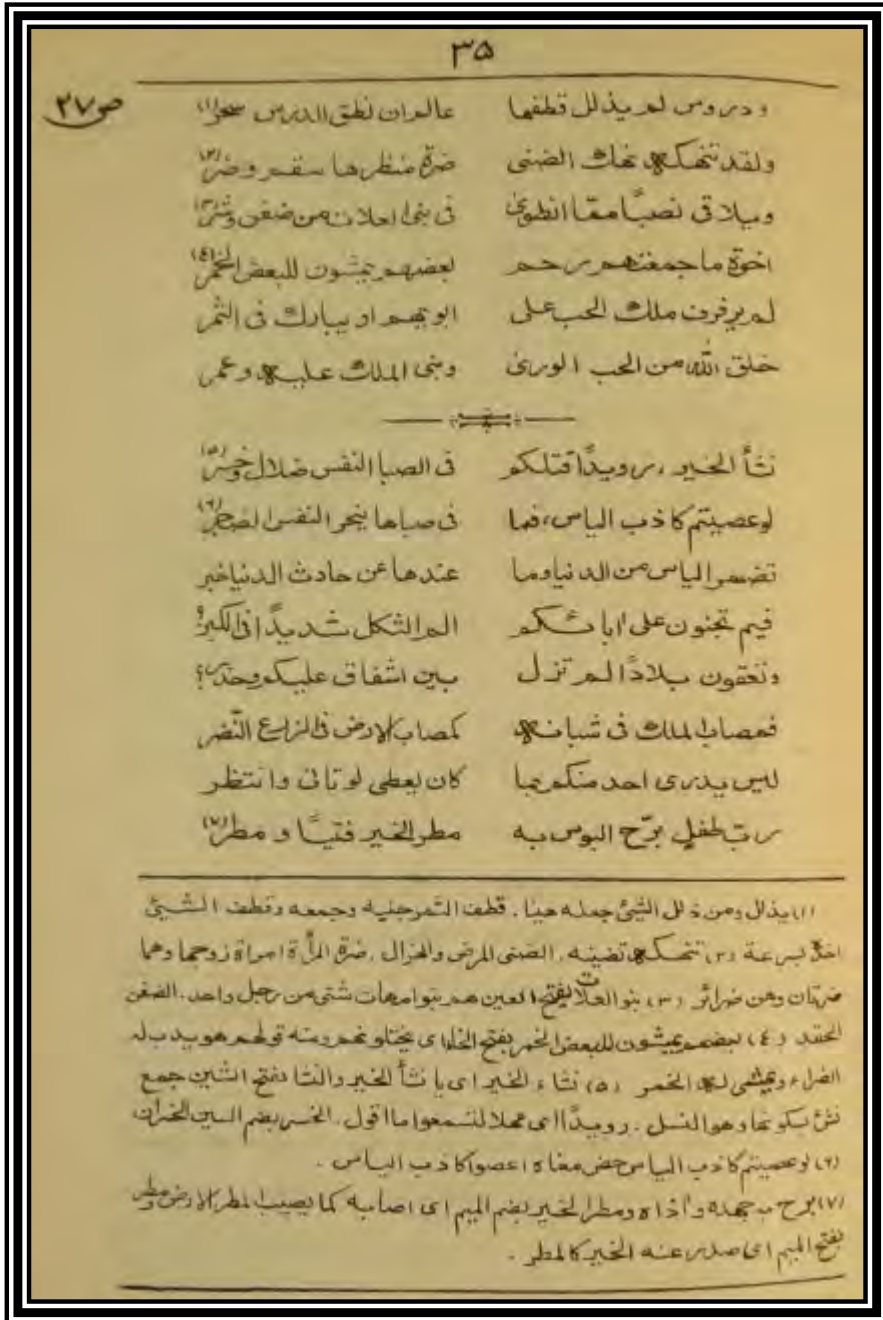 ٣٥
ص٢٧
ودروس لم يذلل قطفها عالم ان نطق الدرس سحر (١)
ولقد تنهكه نهك الضنى ضرة منظرها سقم وضر (٢)
ويلاقى نصبًا مما انطوى فى بنى العلات من ضغن وشر (٣)
اخوة ما جمعتهم رحم بعضهم يمشون للبعض الخمر (٤)
لم يرفرف ملك الحب على ابويهم او يبارك فى الثمر
خلق الله من الحب الورى وبنى الملك عليه وعمر
نشأ الخير، رويدًا قتلكم فى الصبا النفس ضلال وخسر (٥)
لو عصيتم كاذب الياس، فما فى صباها ينحر النفس الضجر (٦)
تضمر الياس من الدنيا وما عندها عن حادث الدنيا خبر
فيم تجنون على ابائكم الم الثكل شديدًا فى الكبر؟
وتعقون بلادًا لم تزل بين اشفاق عليكم وحذر؟
فمصاب الملك فى شبانه كمصاب الارض فى الزرع النضر
ليس يدرى احد منكم بما كان يعطى لو تانى وانتظر
رب طفلٍ برّح البوس به مطر الخير فتيًا ومطر (٧)
(١) يذلل ومن ذلل الشيئ جعله هينا. قطف الثمر جليه وجمعه وقطف الشيئ
اخذ بسرعة (٢) تنهكه تضينه. الضنى المرض والهزال. ضرة المرأة امراة زوجها وهما
ضرتان وهن ضرائر (٣) بنو العلات بفتح العين هم بنو امهات شتى من رجل واحد. الضغن
الحقد (٤) بعضهم يمشون للبعض الخمر بفتح الخاء اى يختلونهم ومنه قولهم هو يدب له
الضراء ويمشى له الخمر (٥) نشاء الخير اى يا نشأ الخير والنشا بفتح الشين جمع
نشئ بسكونها وهو النسل. رويدًا اى مهلا لتسمعوا ما اقول. الخسر بضم السين الخسران
(٦) لو عصيتم كاذب الياس حض معناه اعصوا كاذب الياس.
(٧) برح به جهده واذاه ومطر الخير بضم الميم اى اصابه كما يصيب المطر الارض ومطر
بفتح الميم اى صدر عنه الخير كالمطر.